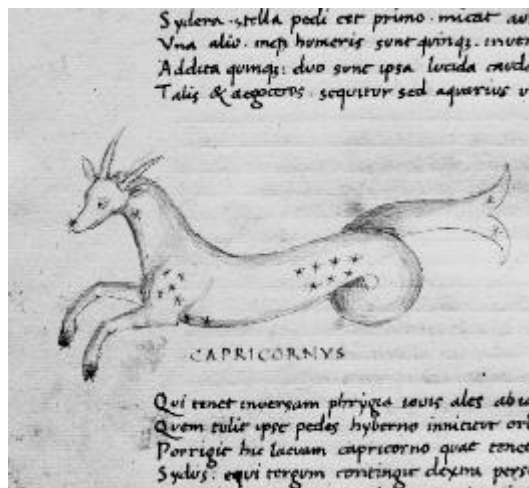 Sydera · stella pedi primo · micat
Vna homeris sunt quinqȝ ·
Addita quinqȝ: duo sunt ipsa lucida
Talis & aegoceros · sequitur sed aquarius
CAPRICORNVS
Qui tenet inuersam phrygia iouis ales
Quem tulit ipse pedes hyberno innicitur
Porrigit hic laeuam capricorno quae
Sydus: equi tergum contingit dextra